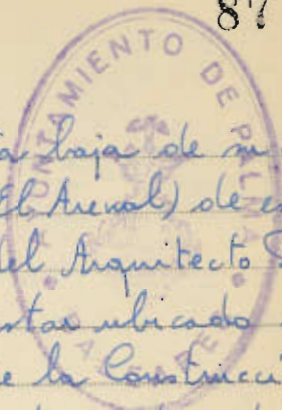 87
AYUNTAMIENTO DE PALMA
baja de su
El Arenal) de e
del Arquitecto
star ubicado
e la Construcci